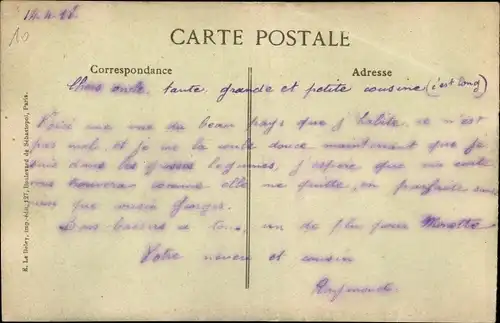 14.4.18
CARTE POSTALE
Correspondance
Adresse
Chers oncle, tante, grande et petite cousine (c'est long)
Voici une vue du beau pays que j'habite, ce n'est
pas mal, et je me la coule douce maintenant que je
suis dans les grosses légumes, j'espère que ma carte
vous trouvera comme elle me quitte, en parfaite
que Georges.
Bons baisers à tous, un de plus pour Minette
Votre neveu et cousin
Raymond.
E. Le Deley, imp.-édit., 127, Boulevard de Sébastopol, Paris.